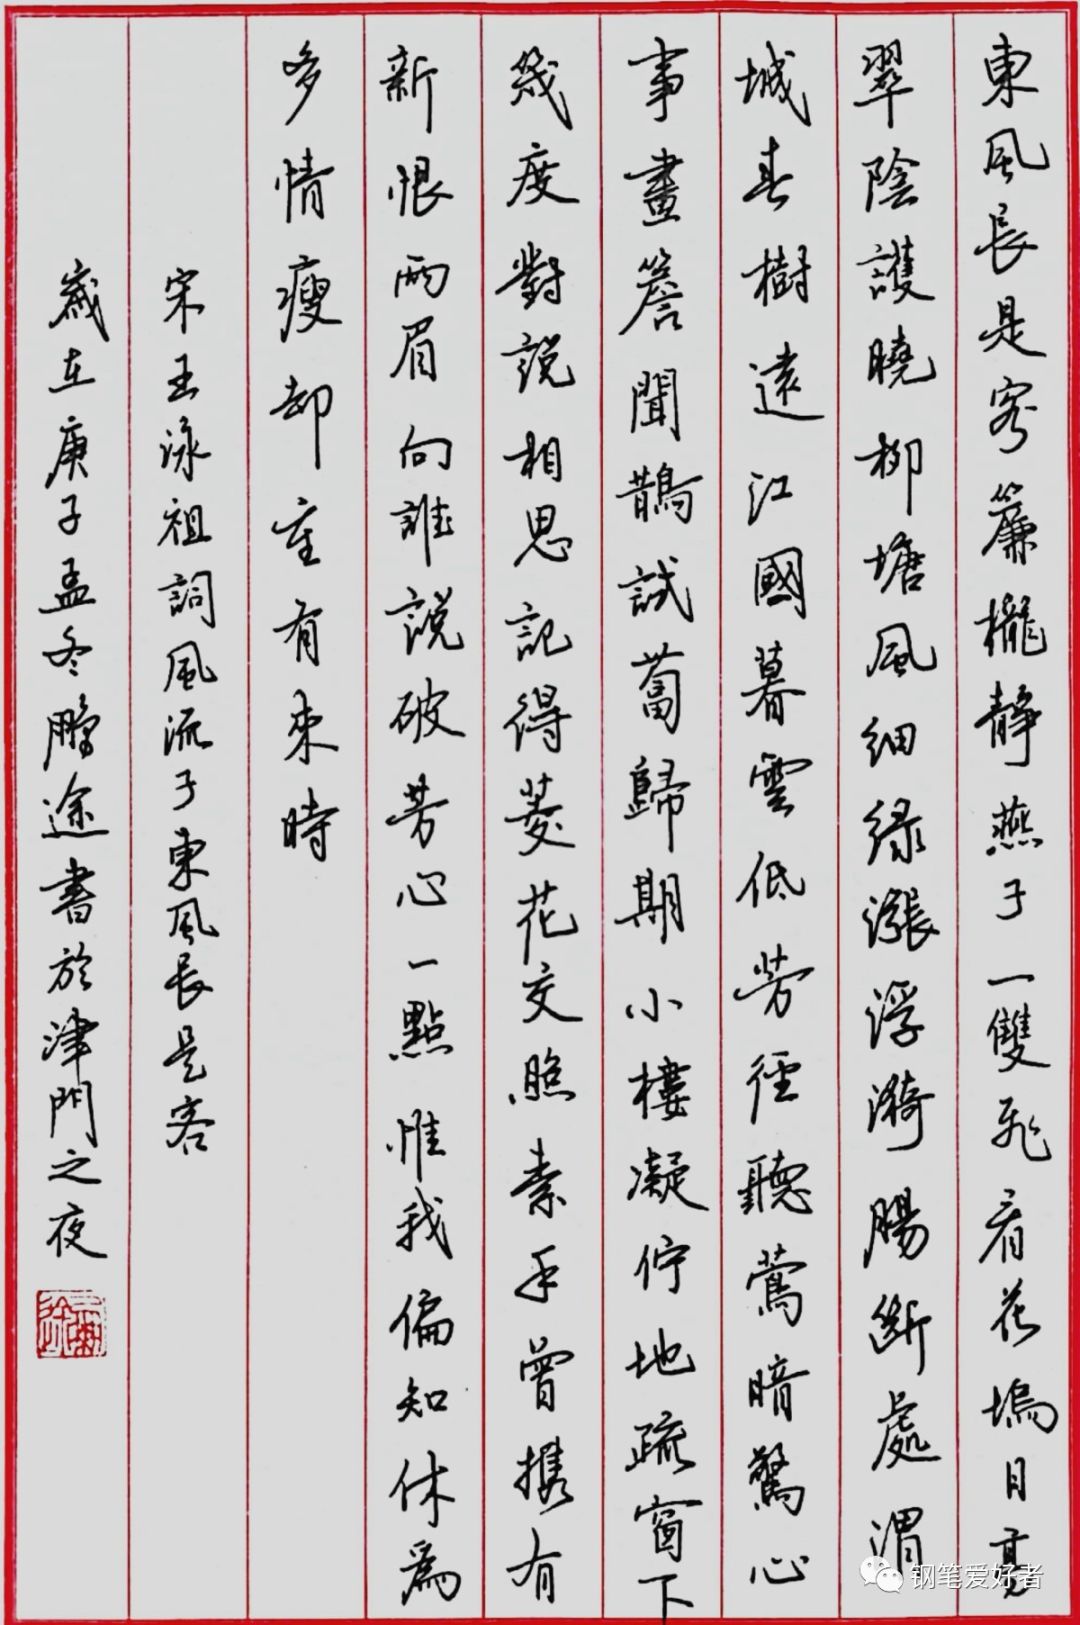 東風長是客簾櫳靜燕子一雙飛看花塢日高
翠陰護曉柳塘風細綠漲浮漪腸斷處渭
城春樹遠江國暮雲低芳徑聽鶯暗驚心
事畫簷聞鵲試蔔歸期小樓凝佇地疏窗下
幾度對說相思記得菱花交照素手曾攜有
新恨兩眉向誰說破芳心一點惟我偏知休為
多情瘦却重有來時
宋王泳祖詞風流子東風長是客
歲在庚子孟冬鵬途書於津門之夜
钢笔爱好者